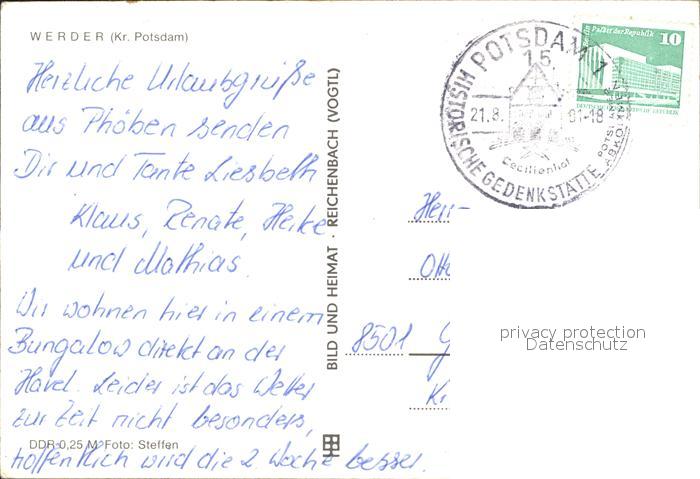 WERDER (Kr. Potsdam)
Herzliche Urlaubsgrüße
aus Phöben senden
Dir und Tante Liesbeth
Klaus, Renate, Heike
und Mathias.
Wir wohnen hier in einem
Bungalow direkt an der
Havel. Leider ist das Wetter
zur Zeit nicht besonders,
hoffentlich wird die 2. Woche besser.
DDR 0,25 M Foto: Steffen
BILD UND HEIMAT · REICHENBACH (VOGTL)
POTSDAM 1
15
21.8.
81-18
Cecilienhof
HISTORISCHE GEDENKSTÄTTE
Palast der Republik
10
Herr
Otto
8501 G
Kr
privacy protection
Datenschutz